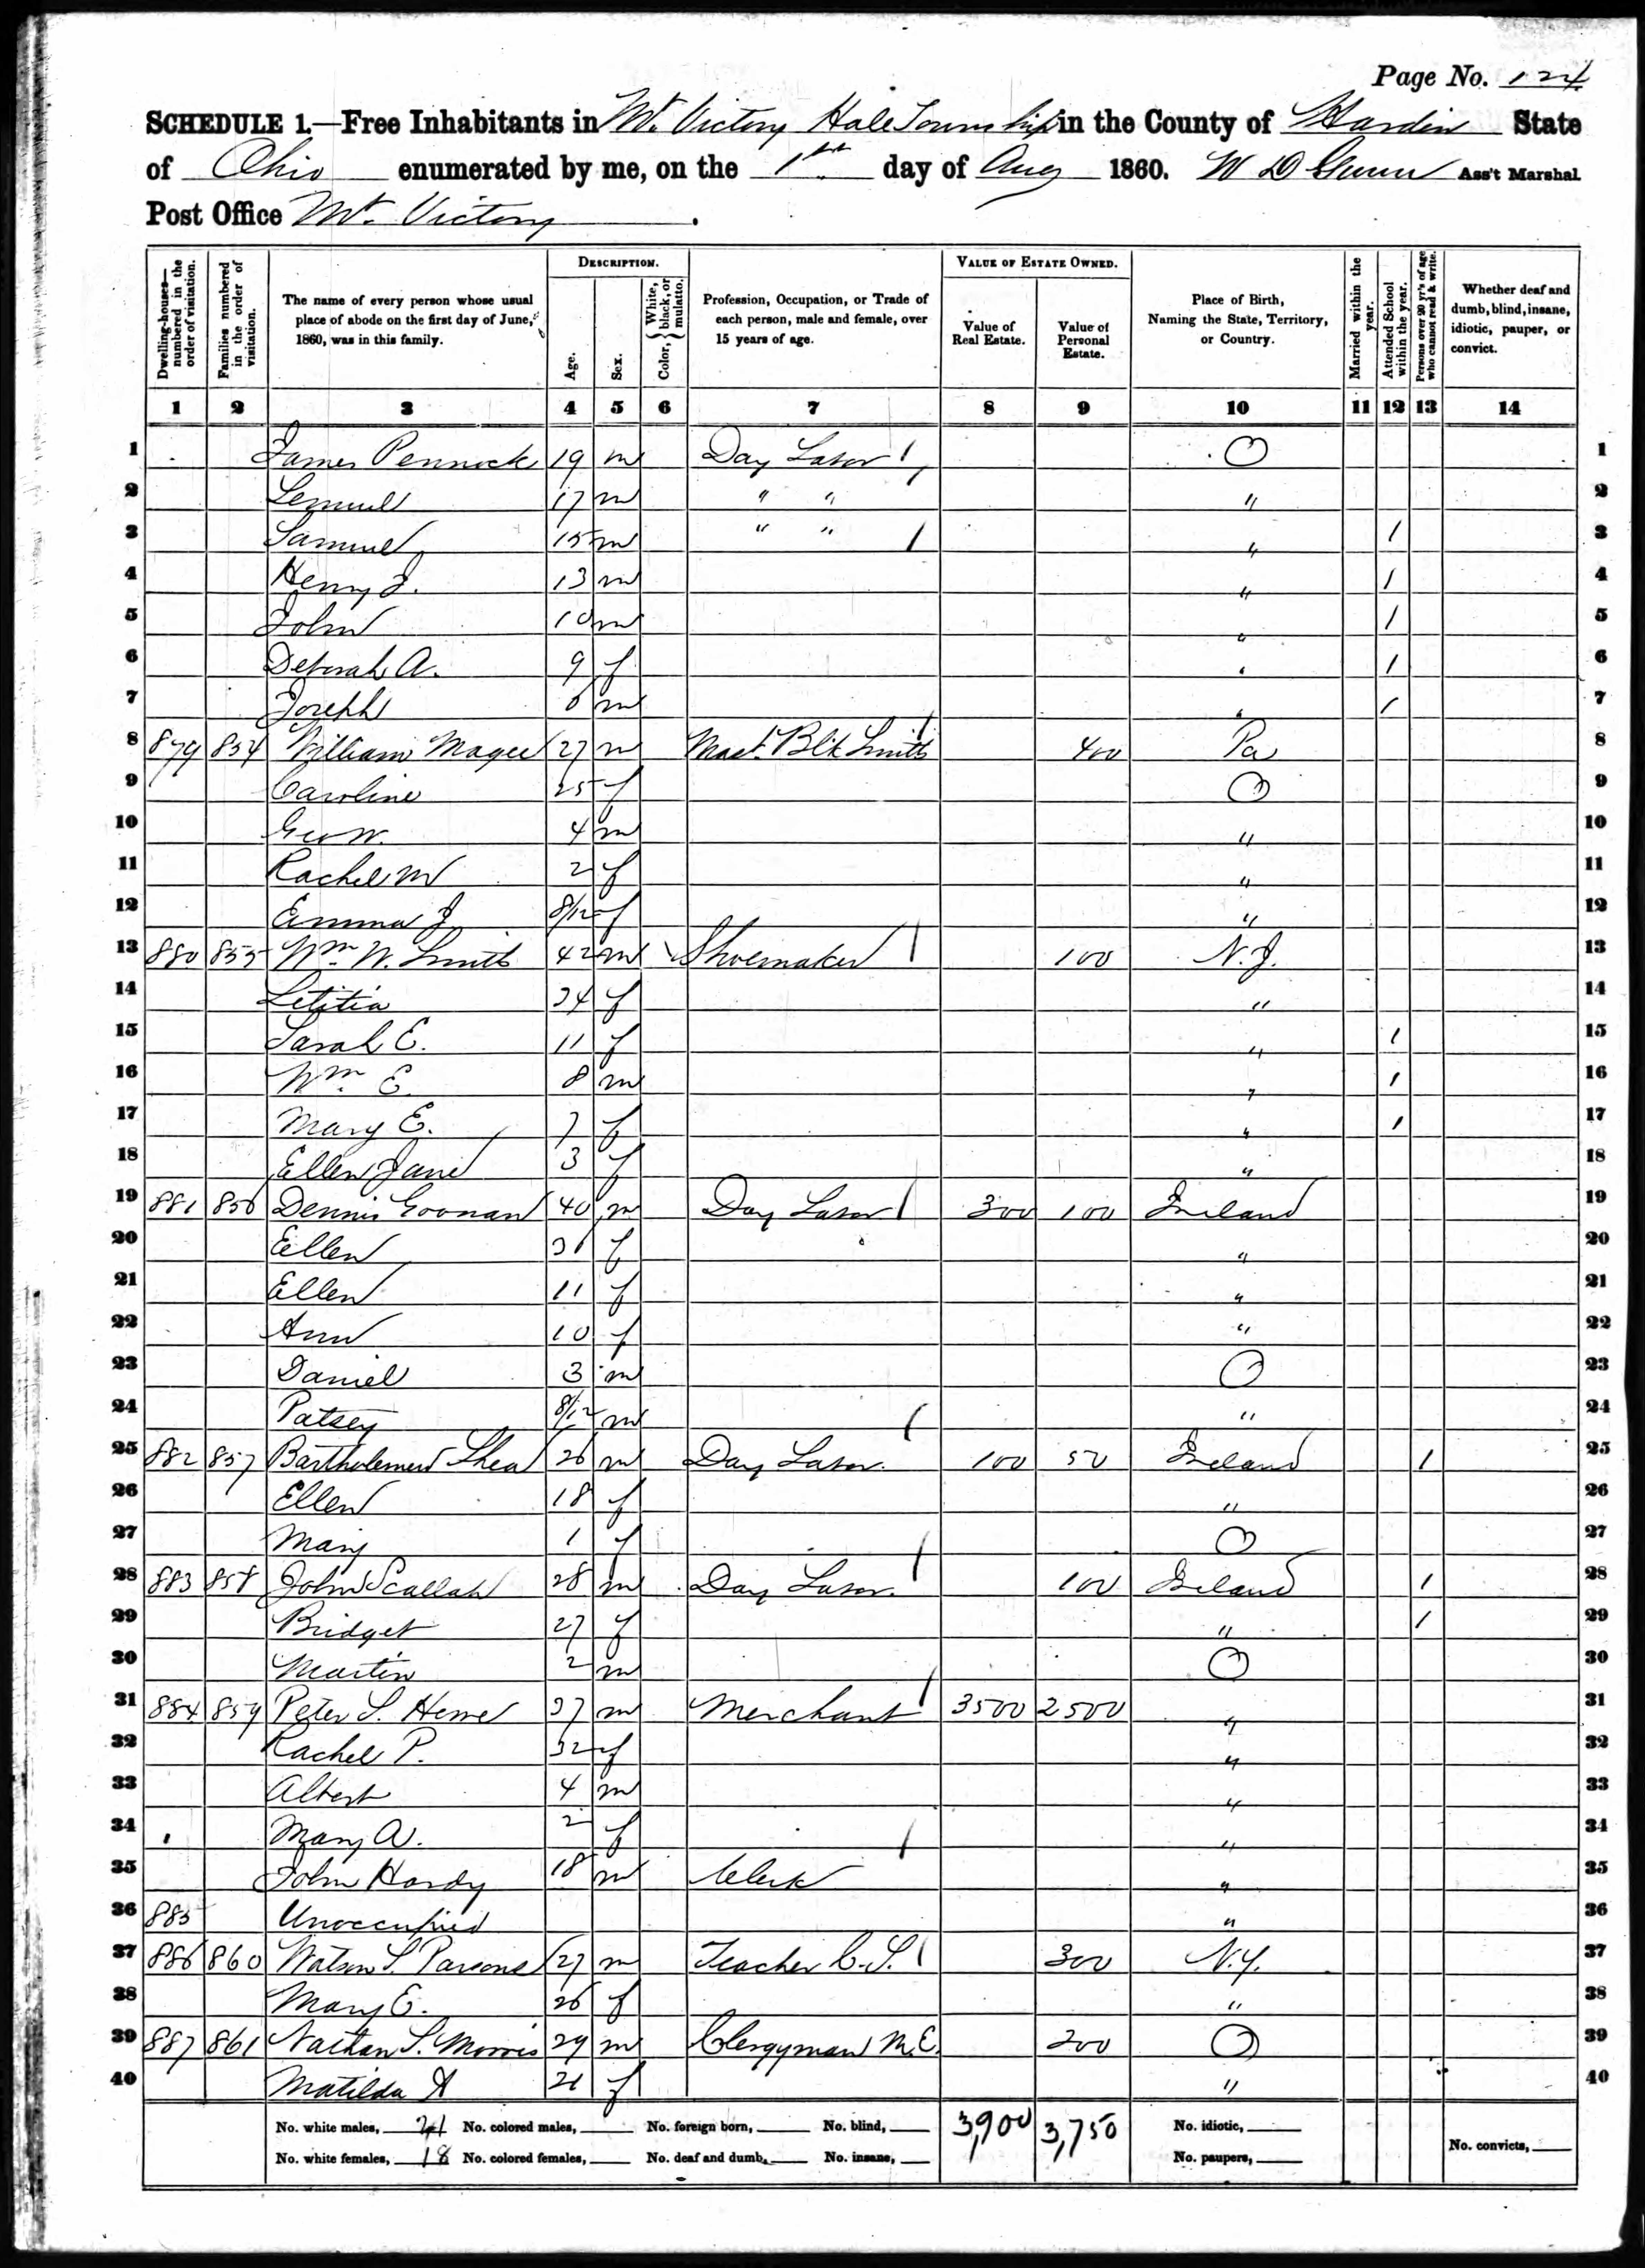 Page No. 124
SCHEDULE 1.—Free Inhabitants in Mt. Victory Hale Township in the County of Hardin State
of Ohio enumerated by me, on the 1st day of Aug 1860. W D Gunn Ass't Marshal
Post Office Mt. Victory.
Dwelling-houses—numbered in the order of visitation. Families numbered in the order of visitation. The name of every person whose usual place of abode on the first day of June, 1860, was in this family. DESCRIPTION. Age. Sex. Color, White, black, or mulatto. Profession, Occupation, or Trade of each person, male and female, over 15 years of age. VALUE OF ESTATE OWNED. Value of Real Estate. Value of Personal Estate. Place of Birth, Naming the State, Territory, or Country. Married within the year. Attended School within the year. Persons over 20 yr's of age who cannot read & write. Whether deaf and dumb, blind, insane, idiotic, pauper, or convict.
1 2 3 4 5 6 7 8 9 10 11 12 13 14
1 James Pennock 19 m Day Labor O 1
2 Lemuel 17 m " " " 2
3 Samuel 15 m " " " / 3
4 Henry J. 13 m " / 4
5 John 10 m " / 5
6 Deborah A. 9 f " / 6
7 Joseph 6 m " / 7
8 879 854 William Magee 27 m Mast. Blk Smith 400 Pa 8
9 Caroline 25 f O 9
10 Geo W. 4 m " 10
11 Rachel M 2 f " 11
12 Emma J 8/12 f " 12
13 880 855 Wm. W. Smith 42 m Shoemaker 100 N.J. 13
14 Letitia 34 f " 14
15 Sarah E. 11 f " / 15
16 Wm. E. 8 m " / 16
17 Mary E. 7 f " / 17
18 Ellen Jane 3 f " 18
19 881 856 Dennis Goonan 40 m Day Labor 300 100 Ireland 19
20 Ellen 36 f " 20
21 Ellen 11 f " 21
22 Ann 10 f " 22
23 Daniel 3 m O 23
24 Patsey 8/12 m " 24
25 882 857 Bartholemew Shea 26 m Day Labor. 100 50 Ireland / 25
26 Ellen 18 f " 26
27 Mary 1 f O 27
28 883 858 John Scallah 28 m Day Labor. 100 Ireland / 28
29 Bridget 27 f " / 29
30 Martin 2 m O 30
31 884 859 Peter S. 37 m Merchant 3500 2500 " 31
32 Rachel P. 32 f " 32
33 Albert 4 m " 33
34 Mary A. 2 f " 34
35 John Hardy 18 m Clerk " 35
36 885 Unoccupied " 36
37 886 860 Watson S. Parsons 27 m Teacher C.S. 300 N.Y. 37
38 Mary E. 26 f " 38
39 887 861 Nathan S. Morris 29 m Clergyman M.E. 200 O 39
40 Matilda A 21 f " 40
No. white males, 21 No. colored males, No. foreign born, No. blind, 3,900 3,750 No. idiotic,
No. white females, 18 No. colored females, No. deaf and dumb, No. insane, No. paupers, No. convicts,